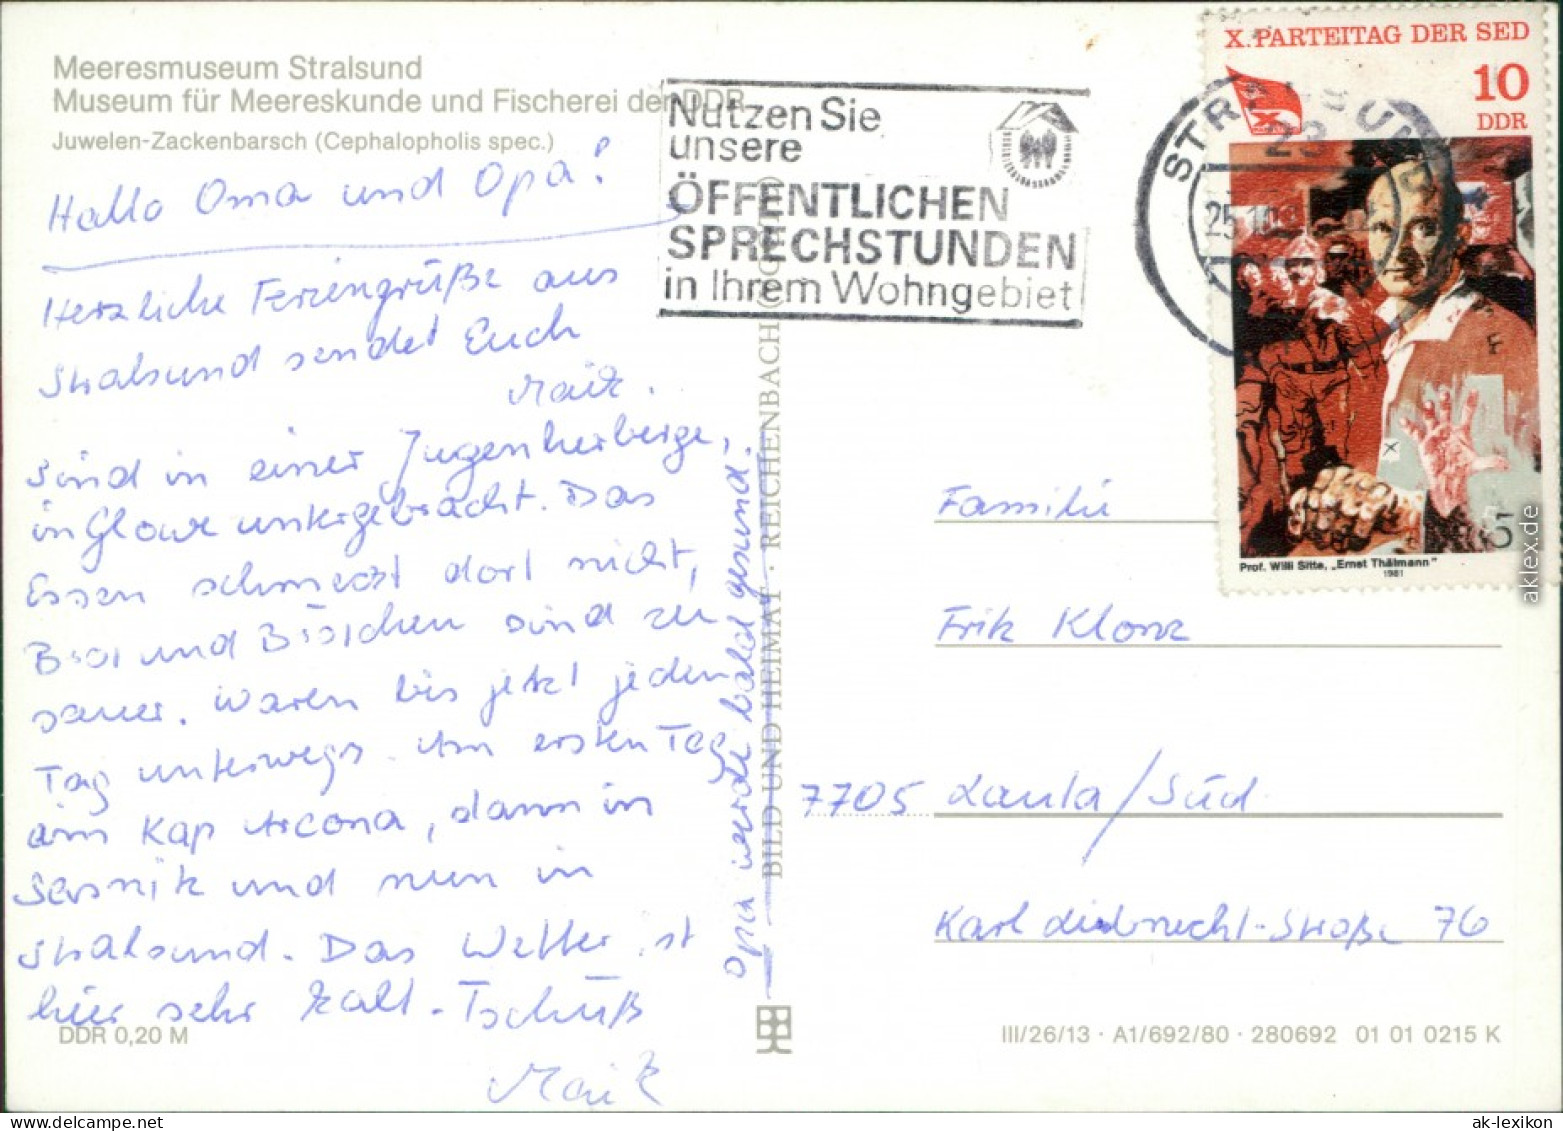 Meeresmuseum Stralsund
Museum für Meereskunde und Fischerei der DDR
Juwelen-Zackenbarsch (Cephalopholis spec.)
Hallo Oma und Opa!
Herzliche Feriengrüße aus
Stralsund sendet Euch
Maik.
Sind in einer Jugenherberge,
in Glowe untergebracht. Das
Essen schmeckt dort nicht,
Brot und Brötchen sind zu
sauer. Waren bis jetzt jeden
Tag unterwegs. Am ersten Tag
am Kap Arcona, dann in
Sassnitz und nun in
Stralsund. Das Wetter ist
hier sehr kalt. Tschüß
Maik
Opa werde bald gesund.
DDR 0,20 M
BILD UND HEIMAT · REICHENBACH
Nutzen Sie
unsere
ÖFFENTLICHEN
SPRECHSTUNDEN
in Ihrem Wohngebiet
STRALSUND
23
25.10
X. PARTEITAG DER SED
10
DDR
Prof. Willi Sitte, „Ernst Thälmann"
1981
5
Familie
Erik Klonz
7705 Lauta/Süd
Karl Liebknecht-Straße 76
III/26/13 · A1/692/80 · 280692 01 01 0215 K
aklex.de
ak-lexikon.com